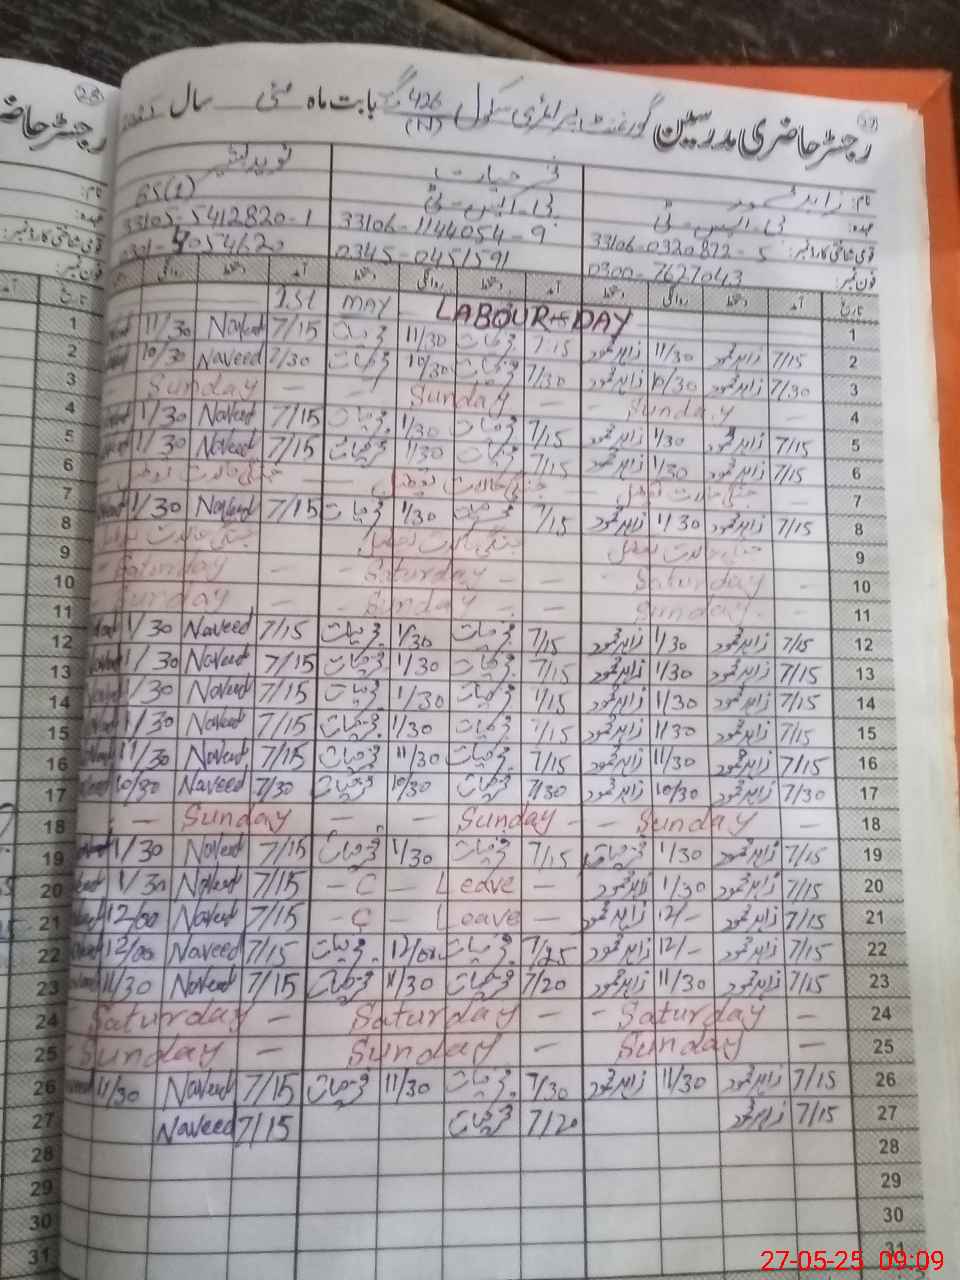 رجسٹر حاضری مدرسین گورنمنٹ پرائمری سکول 426 گ ب بابت ماہ مئی سال
(N)
نام: زاہد محمود خضر حیات نوید
عہدہ: پی۔ایس۔ٹی پی۔ایس۔ٹی
قومی شناختی کارڈ نمبر: 33106-0320872-5 33106-1144054-9 33105-5412820-1
فون نمبر: 0300-7627043 0345-0451591 4054620
تاریخ آمد دستخط روانگی دستخط آمد دستخط روانگی دستخط آمد دستخط روانگی تاریخ
1 LABOUR DAY MAY 1st 1
2 7/15 زاہد محمود 11/30 زاہد محمود 7/15 خضر حیات 11/30 خضر حیات 7/15 Naveed 11/30 2
3 7/30 زاہد محمود 10/30 زاہد محمود 7/30 خضر حیات 10/30 خضر حیات 7/30 Naveed 10/30 3
4 - Sunday - - Sunday - - Sunday 4
5 7/15 زاہد محمود 1/30 زاہد محمود 7/15 خضر حیات 1/30 خضر حیات 7/15 Naveed 1/30 5
6 7/15 زاہد محمود 1/30 زاہد محمود 7/15 خضر حیات 1/30 خضر حیات 7/15 Naveed 1/30 6
7 - جنگی حالات تعطیل - جنگی حالات تعطیل - جنگی حالات تعطیل 7
8 7/15 زاہد محمود 1/30 زاہد محمود 7/15 خضر حیات 1/30 خضر حیات 7/15 Naveed 1/30 8
9 جنگی حالات تعطیل جنگی حالات تعطیل جنگی حالات تعطیل 9
10 - Saturday - - Saturday - Saturday - 10
11 - Sunday - - Sunday - Sunday 11
12 7/15 زاہد محمود 1/30 زاہد محمود 7/15 خضر حیات 1/30 خضر حیات 7/15 Naveed 1/30 12
13 7/15 زاہد محمود 1/30 زاہد محمود 7/15 خضر حیات 1/30 خضر حیات 7/15 Naveed 1/30 13
14 7/15 زاہد محمود 1/30 زاہد محمود 7/15 خضر حیات 1/30 خضر حیات 7/15 Naveed 1/30 14
15 7/15 زاہد محمود 11/30 زاہد محمود 7/15 خضر حیات 1/30 خضر حیات 7/15 Naveed 1/30 15
16 7/15 زاہد محمود 11/30 زاہد محمود 7/15 خضر حیات 11/30 خضر حیات 7/15 Naveed 11/30 16
17 7/30 زاہد محمود 10/30 زاہد محمود 7/30 خضر حیات 10/30 خضر حیات 7/30 Naveed 10/30 17
18 - Sunday - - Sunday - - Sunday - 18
19 7/15 زاہد محمود 1/30 7/15 خضر حیات 1/30 خضر حیات 7/15 Naveed 1/30 19
20 7/15 زاہد محمود 1/30 زاہد محمود - C - Leave - 7/15 Naveed 1/30 20
21 7/15 زاہد محمود 12/- زاہد محمود - C - Leave - 7/15 Naveed 12/00 21
22 7/15 زاہد محمود 12/- زاہد محمود 7/25 خضر حیات 12/00 خضر حیات 7/15 Naveed 12/00 22
23 7/15 زاہد محمود 11/30 زاہد محمود 7/20 خضر حیات 11/30 خضر حیات 7/15 Naveed 11/30 23
24 - Saturday - - Saturday - Saturday 24
25 - Sunday - Sunday - Sunday - 25
26 7/15 زاہد محمود 11/30 زاہد محمود 7/30 خضر حیات 11/30 خضر حیات 7/15 Naveed 11/30 26
27 7/15 زاہد محمود 7/20 خضر حیات 7/15 Naveed 27
28 28
29 29
30 30
31 31
27-05-25 09:09